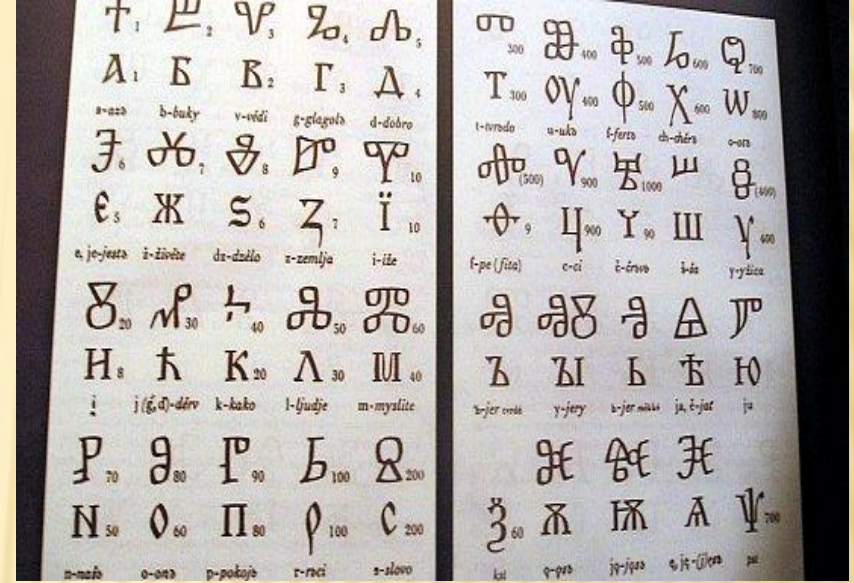 Ⰰ1 Ⰱ2 Ⰲ3 Ⰳ4 Ⰴ5
А1 Б В2 Г3 Д4
a-azъ b-buky v-vědi g-glagolъ d-dobro
Ⰵ6 Ⰶ7 Ⰷ8 Ⰸ9 Ⰺ10
Є5 Ж Ѕ6 З7 Ї10
e, je-jestъ ž-živěte dz-dzělo z-zemlja i-iže
Ⰻ20 Ⰼ30 Ⰽ40 Ⰾ50 Ⰿ60
Н8 Ћ К20 Л30 М40
i j (ǵ, d)-děrv k-kako l-ljudje m-myslite
Ⱀ70 Ⱁ80 Ⱂ90 Ⱃ100 Ⱄ200
N50 О60 П80 Р100 С200
n-našь o-onъ p-pokojь r-rьci s-slovo
Ⱅ300 Ⱆ400 Ⱇ500 Ⱈ600 Ⱉ700
Т300 ОУ400 Ф500 Х600 Ѡ800
t-tvrьdo u-ukъ f-fertъ ch-chěrъ o-otъ
Ⱚ(500) Ⱌ900 Ⱍ1000 Ⱎ Ⱛ(400)
Ѳ9 Ц900 Ү90 Ш Ѵ400
f-pe (fita) c-ci č-črьvь š-ša y-yžica
Ⱏ Ⱏⰻ Ⱐ Ⱑ Ⱓ
Ъ ЪІ Ь Ѣ Ю
ъ-jer y-jery ь-jer ja, ě-jať ju
Ⱘ Ⱙ Ⱔ
Ѯ60 Ѫ Ѭ Ѧ Ѱ700
ksi ǫ-ǫsъ jǫ-jǫsъ psi